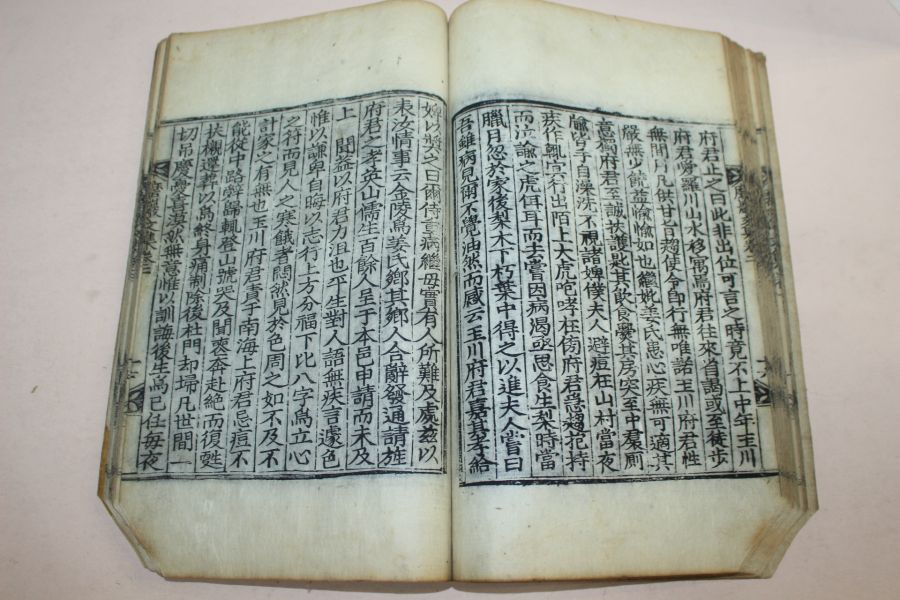 府君止之曰此非出位可言之時竟不上中年玉川
府君旁羅川山水移寓焉府君往來省謁或至徒步
無間月凡供甘旨趨使令卽行無唯諾玉川府君性
嚴無少能益愉愉如也繼妣姜氏患心疾無可適其
意獨府君一誠扶護匙其飮食爨其房突至中裙厠
牏皆手自澡洗不視諸婢僕夫人避痘在山村當夜
疾作輒宜行出陌上大虎咆哮在傍府君急趨抱持
而泣諭之虎俛耳而去嘗因病渴亟思食生梨時當
臘月忽於家後梨木下朽葉中得之以進夫人嘗曰
吾雖病見爾不覺油然而感云玉川府君嘉其孝給
婢以獎之曰爾侍病繼母實有人所難及處玆以
表汝情事云金陵爲姜氏鄕其鄕人合辭發通請旌
府君之孝英山儒生百餘人呈于本邑申請而未及
上聞益以府君力沮也平生對人語無疾言遽色
惟以謙卑自晦以志行上方分福下比八字爲立心
之符而見人之寒餓者闕然見於色周之如不及不
計家之有無也玉川府君責子南海上府君忌痘不
能從中路辭歸輒登山號哭及聞喪奔赴絶而復甦
扶櫬還葬以爲終身痛制除後杜門却掃凡世間一
切吊慶宴會漠然無意惟以訓誨後生爲己任每夜